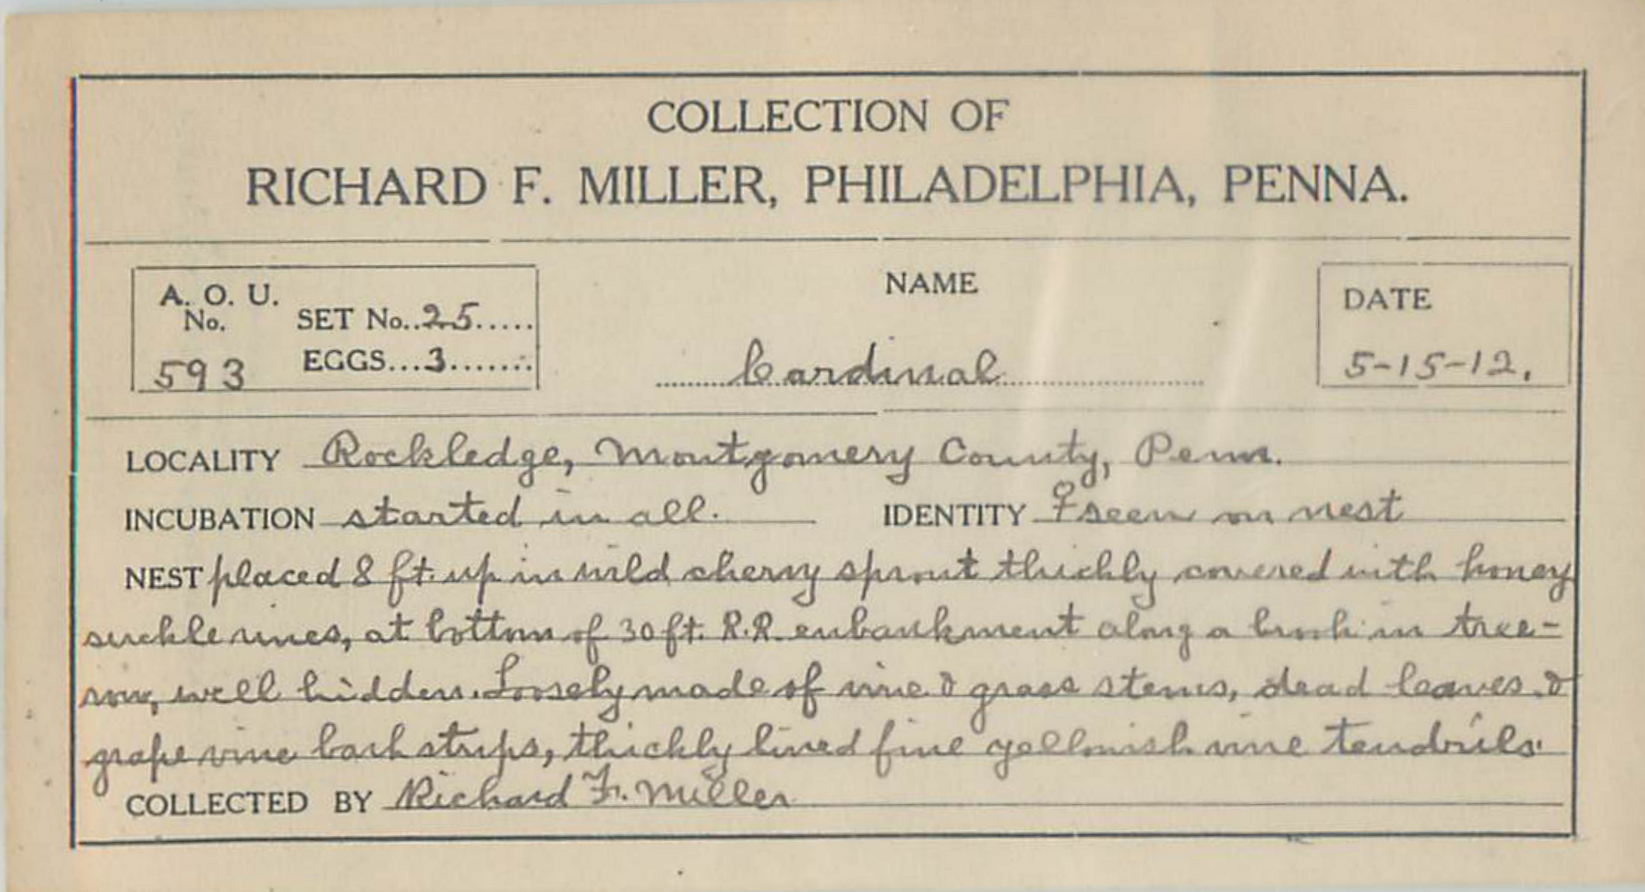 COLLECTION OF
RICHARD F. MILLER, PHILADELPHIA, PENNA.
A. O. U. No. 593
SET No..25.....
EGGS...3.......
NAME
Cardinal
DATE
5-15-12.
LOCALITY Rockledge, Montgomery County, Penn.
INCUBATION started in all. IDENTITY ♀ seen on nest
NEST placed 8 ft. up in wild cherry sprout thickly covered with honey
suckle vines, at bottom of 30 ft. R.R. enbankment along a brook in tree-
row, well hidden. Loosely made of vine & grass stems, dead leaves &
grape vine bark strips, thickly lined fine yellowish vine tendrils.
COLLECTED BY Richard F. Miller